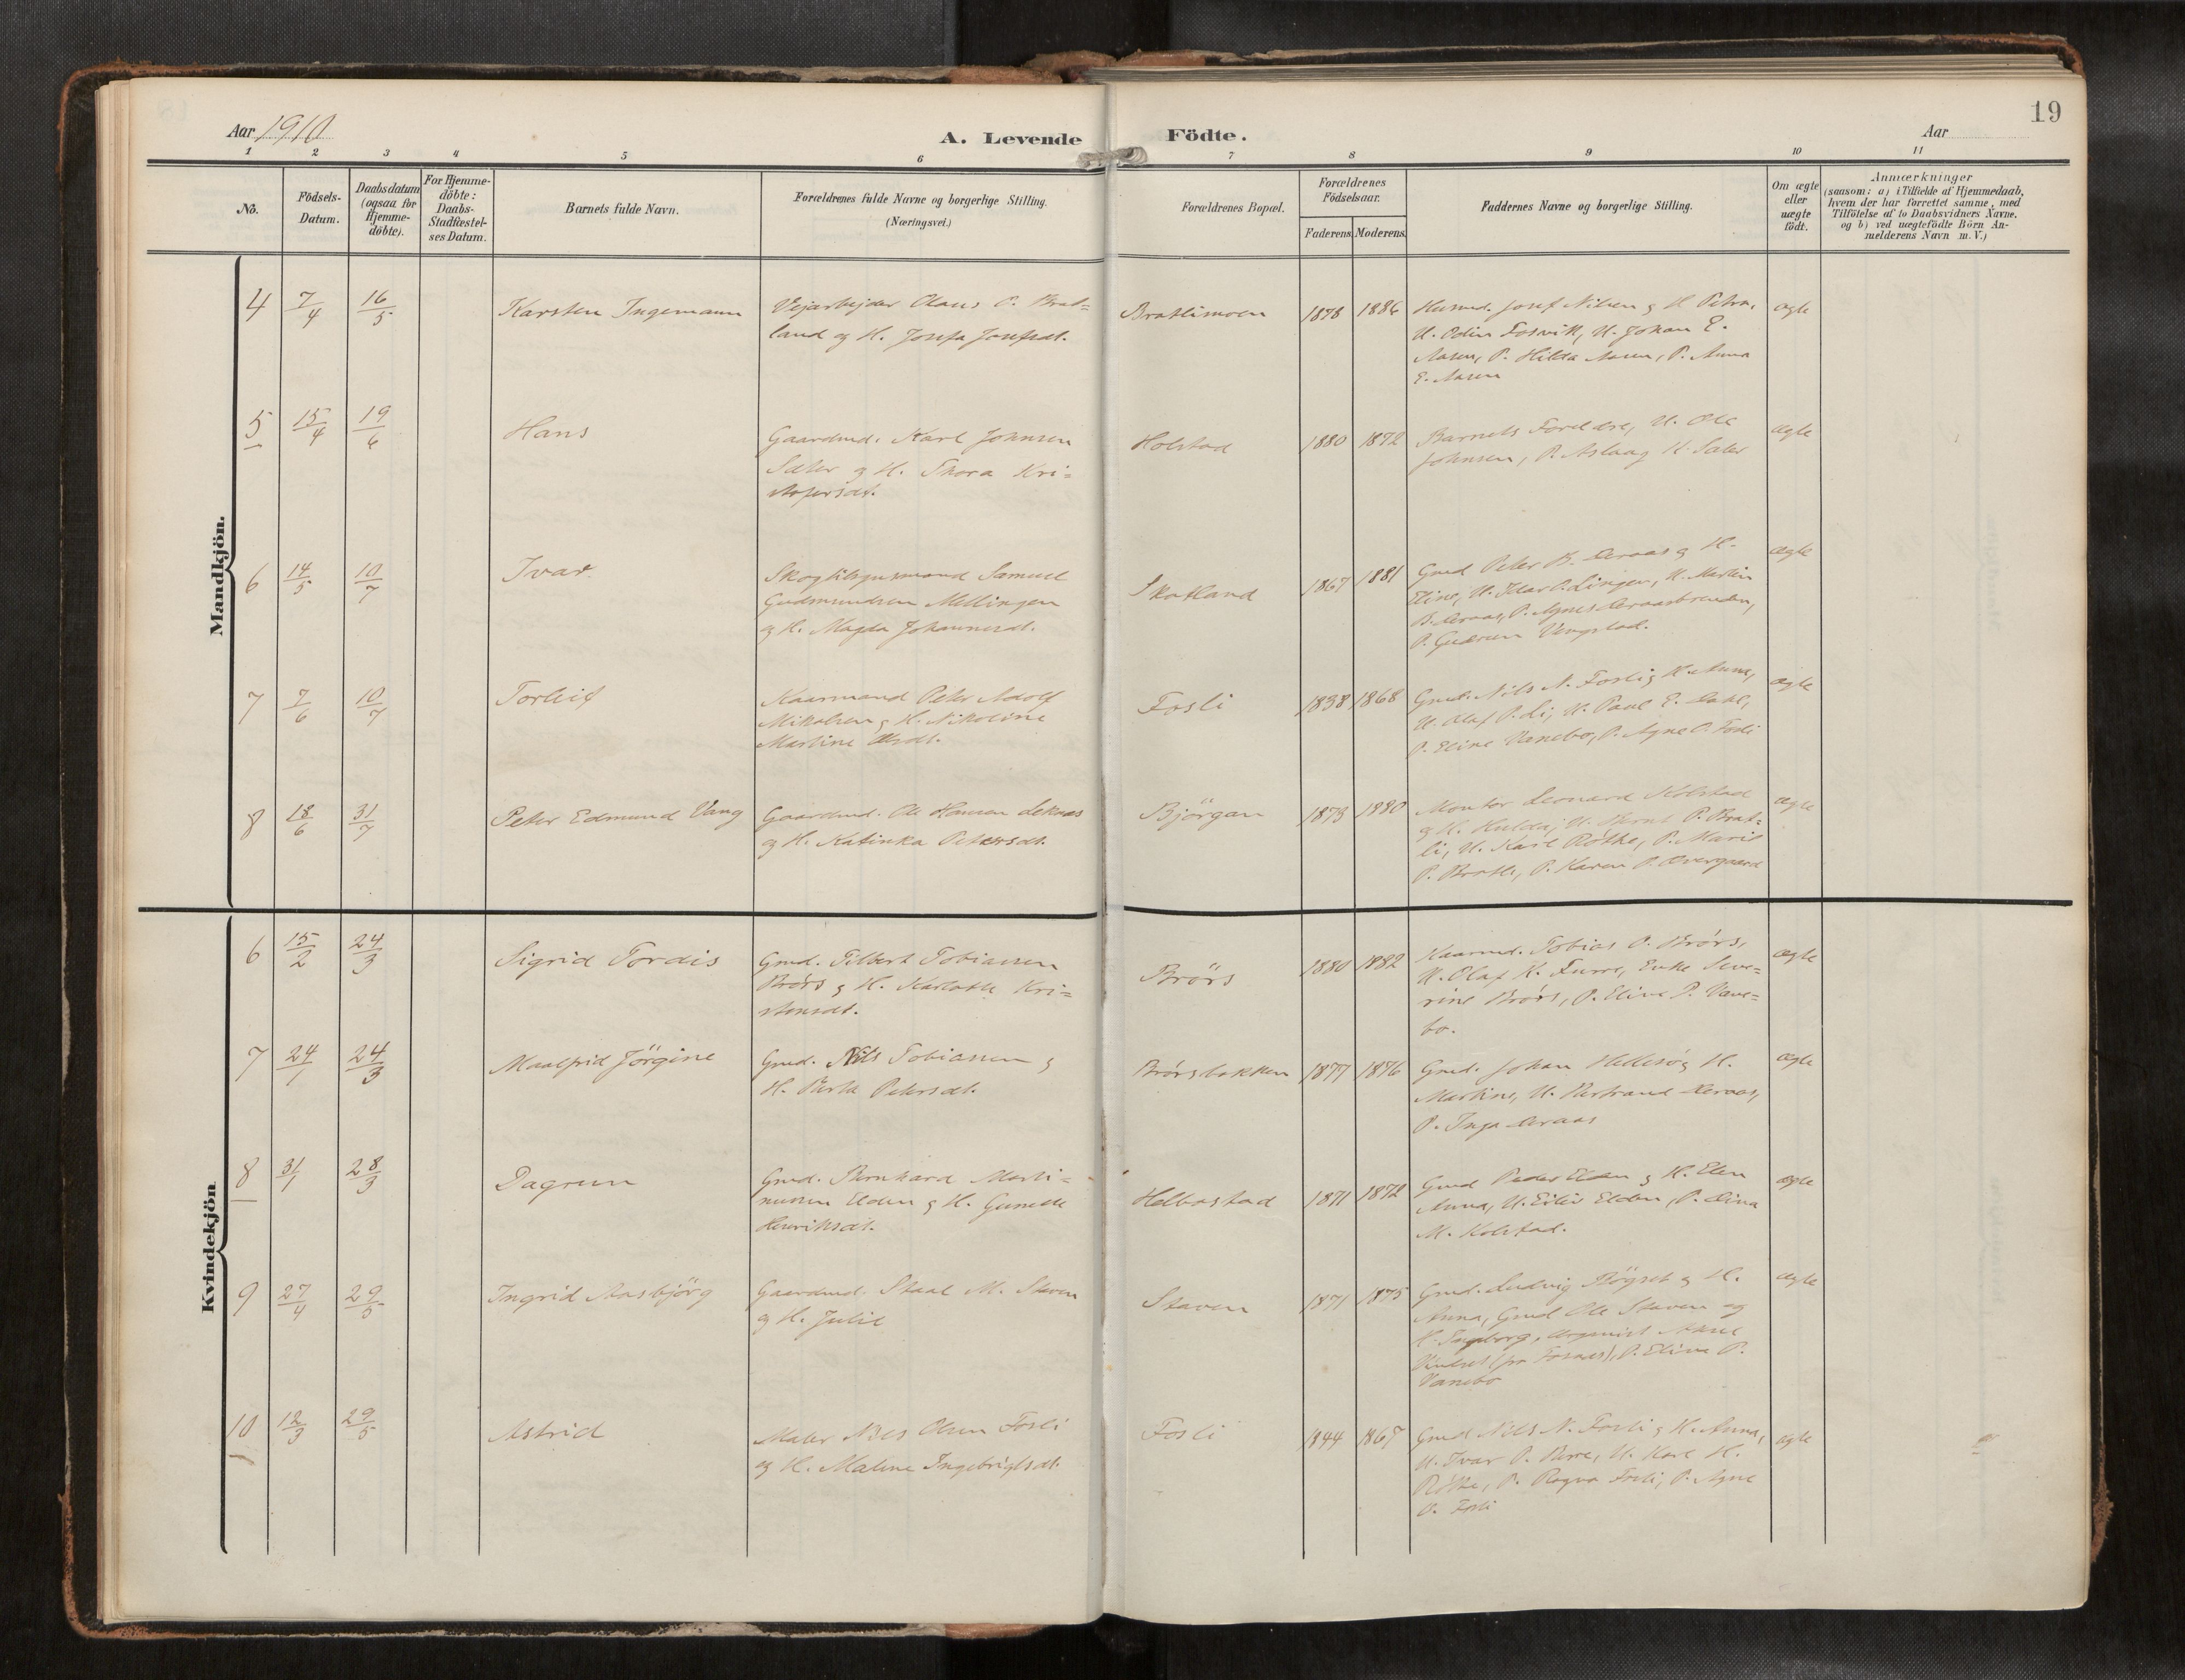 19
Aar 1910
A. Levende Födte.
Aar
1 2 3 4 5 6 7 8 9 10 11
No.
Födsels-
Datum.
Daabsdatum
(ogsaa for
Hjemme-
döbte).
For Hjemme-
döbte:
Daabs-
Stadfæstel-
ses Datum.
Barnets fulde Navn.
Forældrenes fulde Navne og borgerlige Stilling.
(Næringsvei.)
Forældrenes Bopæl.
Forældrenes
Födselsaar.
Faderens. Moderens.
Faddernes Navne og borgerlige Stilling.
Om ægte
eller
uægte
födt.
Anmærkninger
(saasom: a) i Tilfælde af Hjemmedaab,
hvem der har forrettet samme, med
Tilföielse af to Daabsvidners Navne,
og b) ved uægtefödte Börn An-
melderens Navn m. V.)
Mandkjön.
4 7/4 16/5 Karsten Ingemann
Vejarbejder Olaus P. Brat=
land og H. Josefa Josefsdt.
Bratlimoen 1878 1886
Husmd. Josef Nilsen og H. Petra,
U. Odin Fosvik, U. Johan E.
Aasen, P. Hilda Aasen, P. Anna
E. Aasen
ægte
5 15/4 19/6 Hans
Gaardmd. Karl Johnsen
Sæter og H. Thora Kri=
stofersdt.
Holstad 1880 1872
Barnets Foreldre, U. Ole
Johnsen, P. Aslaug K. Sæter
ægte
6 14/5 10/7 Ivar
Skogtilsynsmand Samuel
Gudmundsen Mellingen
og H. Magda Johannesdt.
Skatland 1867 1881
Gmd Peter B. Aeraas og H.
Eline, U. P. Lingen, U. Martin
B. Aeraas, P. Agnes
P. Gudrun Vengstad.
ægte
7 7/6 10/7 Torleif
Kaarmand Peter Adolf
Nikolsen og H. Nikoline
Martine Olsdt.
Fosli 1838 1868
Gmd. Nils N. Fosli og H. Anna,
U. Olaf P. Li, U. Paul E. Dahl,
P. Eline Vanebo, P. Agne O. Fosli
ægte
8 18/6 31/7 Peter Edmund Vang
Gaardmd. Ole Hansen Leknes
og H. Katinka Petersdt.
Björgan 1873 1880
Montør Leonard Kolstad
og H. Hulda, U. Bernt P. Brat=
li, U. Karl Røthe, P. Marie
P. Bratli, P. Karen P. Overgaard
ægte
Kvindekjön
6 15/2 24/3 Sigrid Tordis
Gmd. Tilbert Tobiassen
Brørs og H. Karlotte Kri=
stensdt.
Brörs 1880 1882
Kaarmd. Tobias O. Brørs,
U. Olaf K. Furre, Enke Seve=
rine Brørs, P. Eline P. Vane=
bo.
ægte
7 24/1 24/3 Maalfrid Jörgine
Gmd. Nils Tobiassen og
H. Berta Petersdt.
Brørsbakken 1877 1876
Gmd. Johan Hellesø og H.
Martine, U. Bertrand Aeraas,
P. Inga Aeraas
ægte
8 31/1 28/3 Dagrun
Gmd. Bernhard Marti=
nussen Elden og H. Gunelle
Henriksdt.
Helbostad 1871 1872
Gmd Peder Elden og H. Elen
Anna, U. Eiliv Elden, P. Dina
M. Kolstad.
ægte
9 27/4 29/5 Ingrid Aasbjörg
Gaardmd. Staal M. Staven
og H. Julie
Staven 1871 1875
Gmd. Ludvig Bögset og H.
Anna, Gmd Ole Staven og
H. Ingeborg, Organist
(fra Fosnæs), P. Eline P.
Vanebo
ægte
10 12/3 29/5 Astrid
Maler Nils Olsen Fosli
og H. Maline Ingebrigtsdt.
Fosli 1844 1867
Gmd Nils N. Fosli og H. Anna,
U. Ivar P. Berre, U. Karl H.
Røthe, P. Ragna Fosli, P. Agne
O. Fosli
ægte